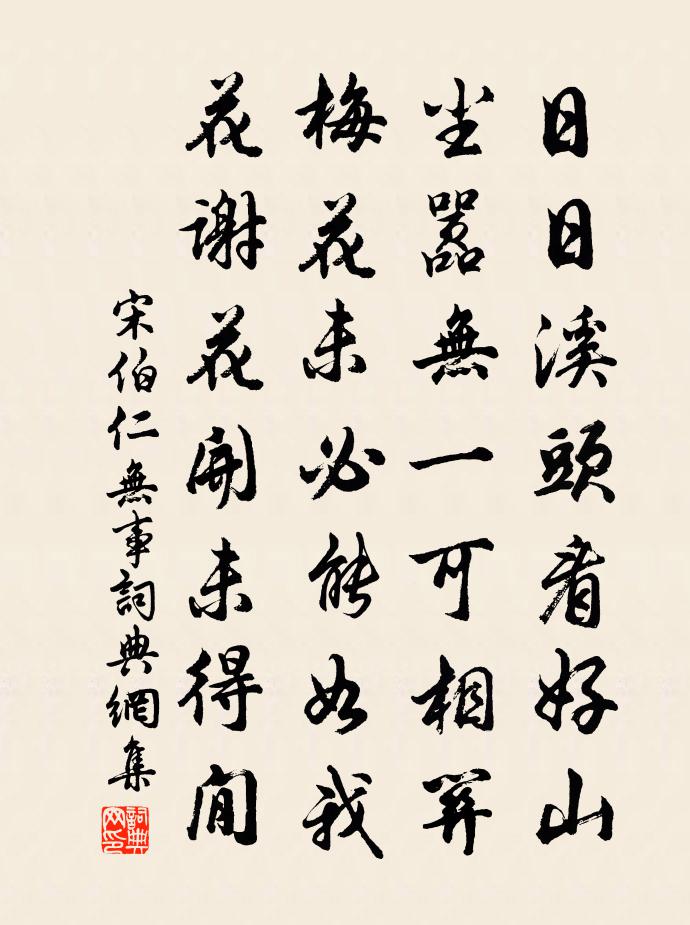 日日溪頭看好山
尘囂無一可相關
梅花未必能如我
花謝花開未得閒
宋伯仁無事詞典網集
詞典网印